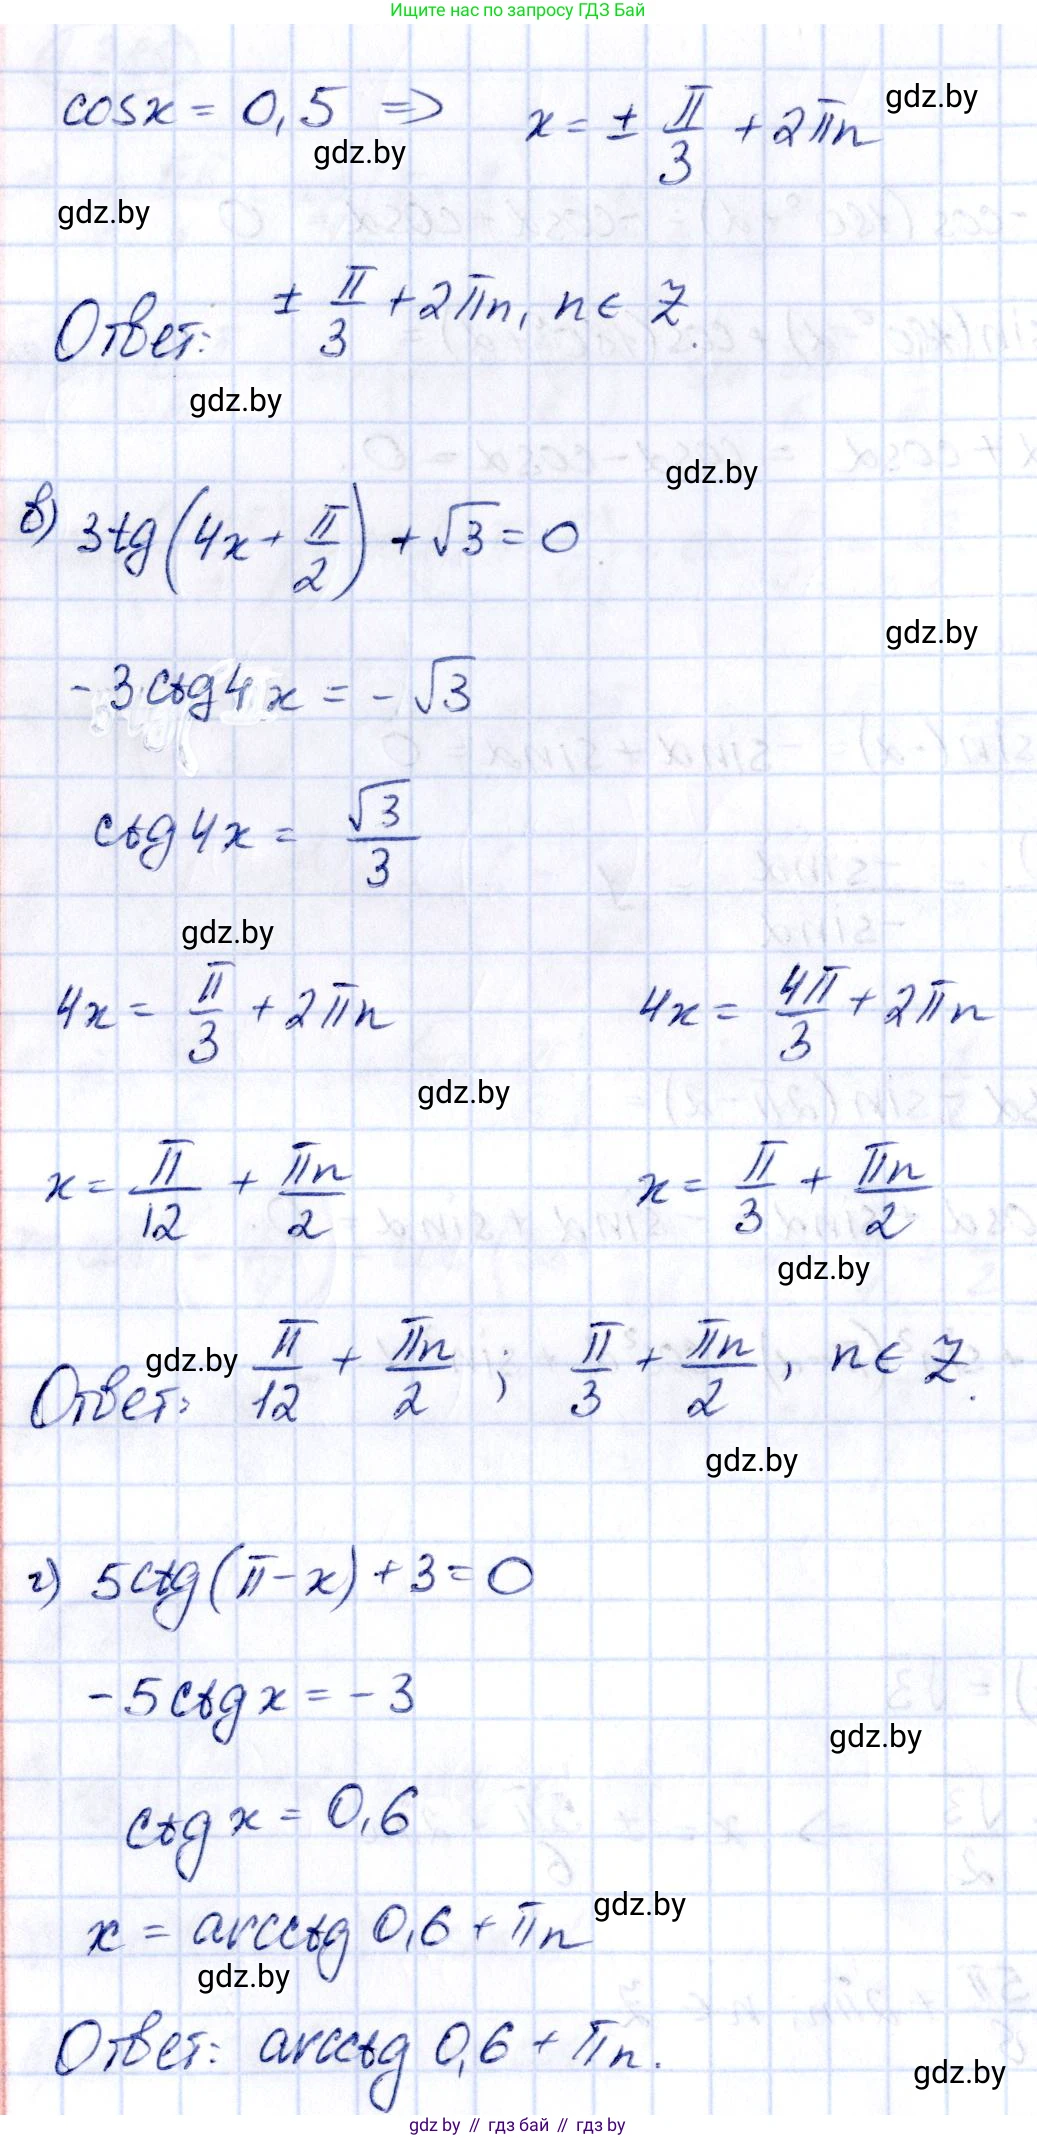 Ищите нас по запросу ГДЗ Бай
cosx = 0,5 => x = ± π/3 + 2πn
gdz.by
gdz.by
gdz.by
Ответ: ± π/3 + 2πn, n ∈ Z.
gdz.by
gdz.by
в) 3tg(4x + π/2) + √3 = 0
gdz.by
-3ctg4x = -√3
ctg4x = √3/3
gdz.by
4x = π/3 + 2πn 4x = 4π/3 + 2πn
gdz.by
x = π/12 + πn/2 x = π/3 + πn/2
gdz.by
gdz.by
Ответ: π/12 + πn/2 ; π/3 + πn/2 , n ∈ Z.
gdz.by
г) 5ctg(π - x) + 3 = 0
-5ctgx = -3
gdz.by
ctgx = 0,6
gdz.by
x = arcctg 0,6 + πn
gdz.by
Ответ: arcctg 0,6 + πn.
gdz.by
gdz.by // гдз бай // гдз by